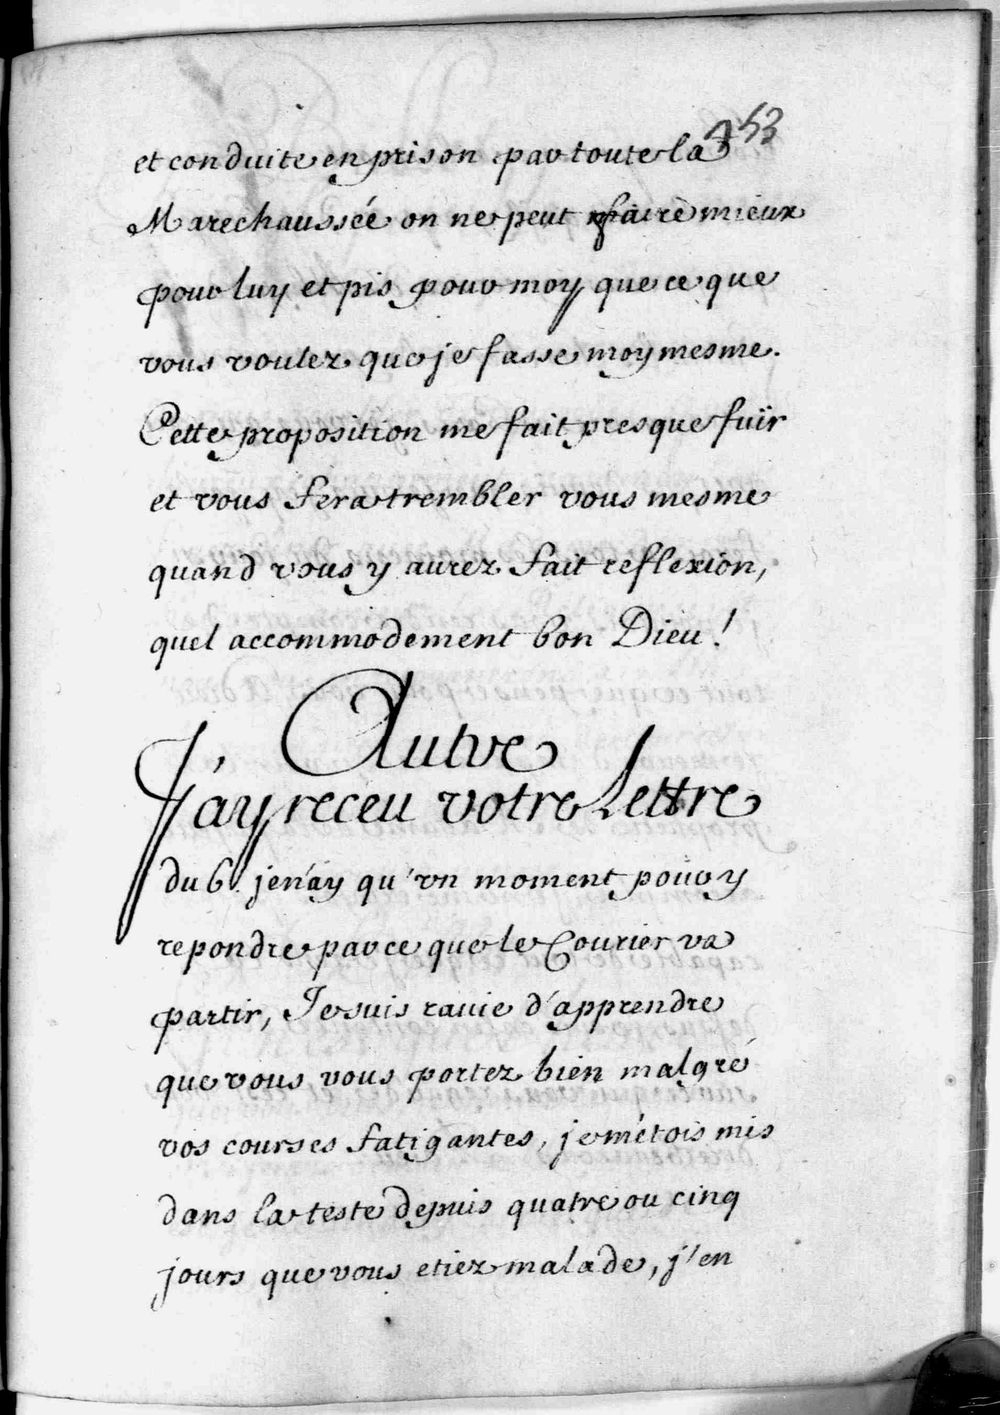 353
et conduite en prison par toute la
Marechaussée on ne peut faire mieux
pour luy et pis pour moy que ce que
vous voulez que je fasse moy mesme.
Cette proposition me fait presque fuïr
et vous fera trembler vous mesme
quand vous y aurez fait reflexion,
quel accommodement bon Dieu!
Autre
J'ay receu votre Lettre
du 6. je n'ay qu'vn moment pour y
repondre parce que le Courier va
partir, Je suis rauie d'apprendre
que vous vous portez bien malgré
vos courses fatigantes, je m'étois mis
dans la teste depuis quatre ou cinq
jours que vous etiez malade, j'en